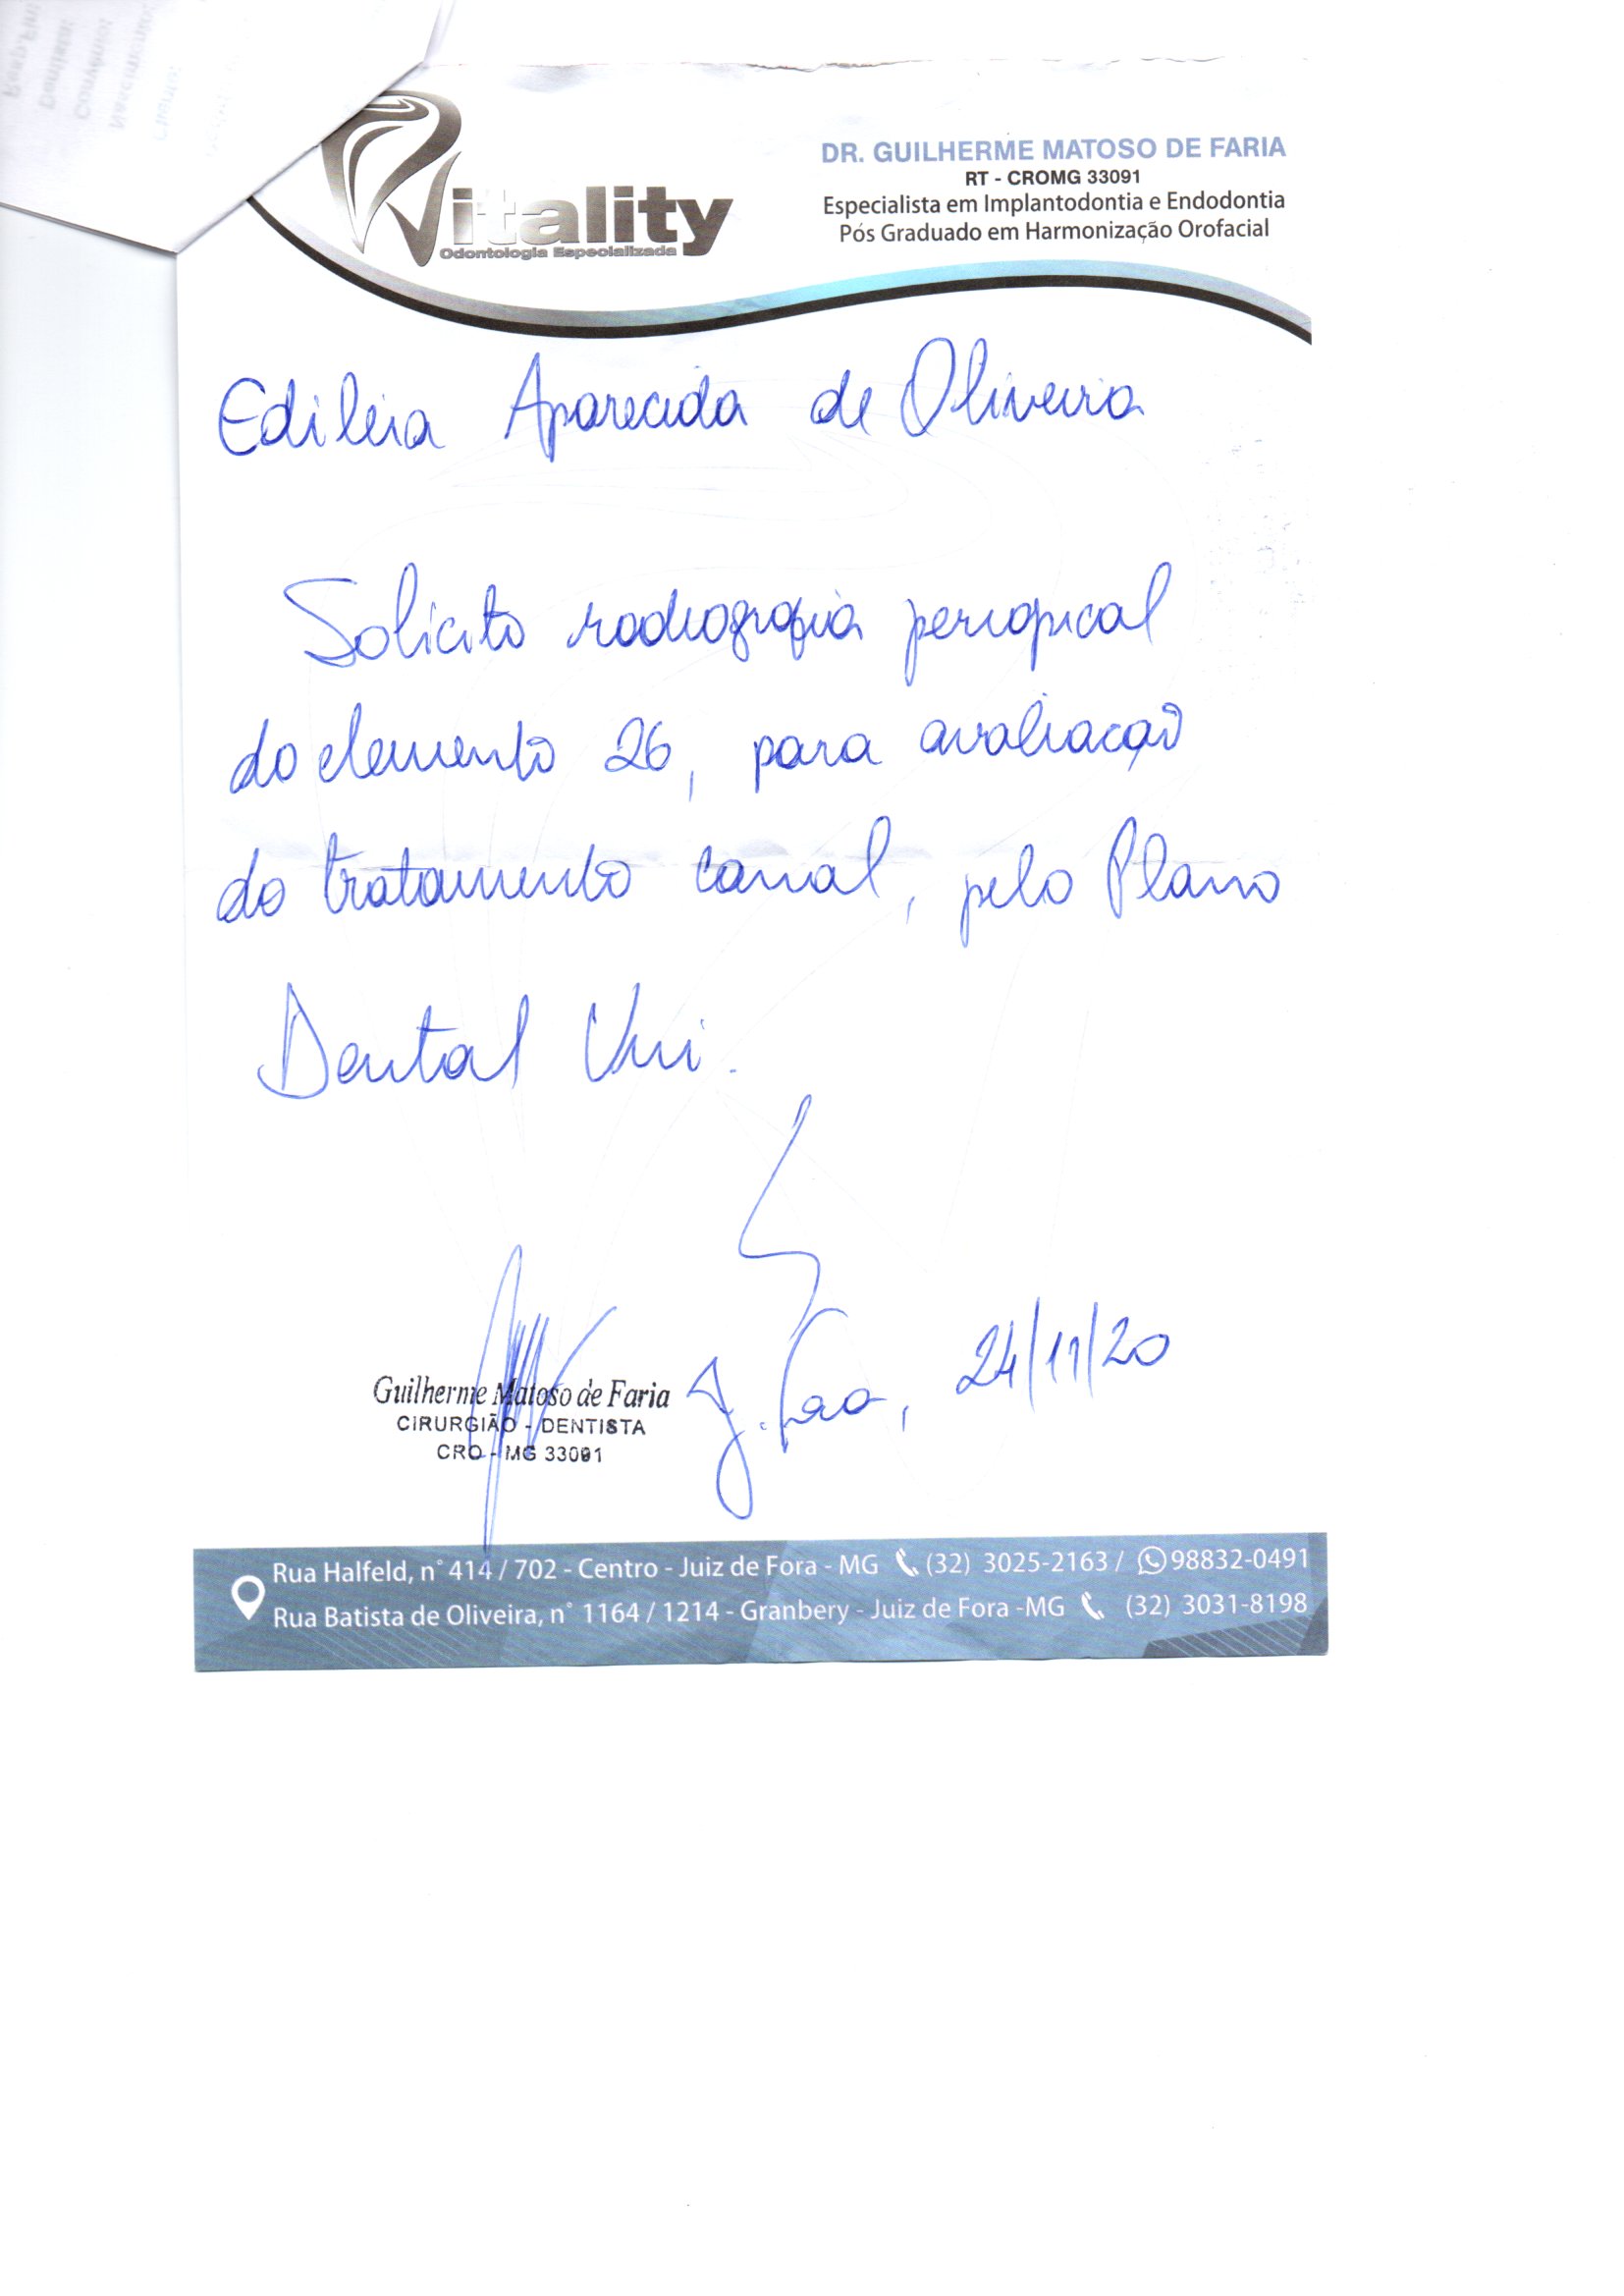 Vitality
Odontologia Especializada
DR. GUILHERME MATOSO DE FARIA
RT - CROMG 33091
Especialista em Implantodontia e Endodontia
Pós Graduado em Harmonização Orofacial
Resp.Fin:
Dentista:
Convênio:
Nascimento:
Cliente:
Edileia Aparecida de Oliveira
Solicito radiografia periapical
do elemento 26, para avaliação
do tratamento canal, pelo Plano
Dental Uni.
J. Fora, 24/11/20
Guilherme Matoso de Faria
CIRURGIÃO - DENTISTA
CRO - MG 33091
Rua Halfeld, n° 414 / 702 - Centro - Juiz de Fora - MG (32) 3025-2163 / 98832-0491
Rua Batista de Oliveira, n° 1164 / 1214 - Granbery - Juiz de Fora -MG (32) 3031-8198